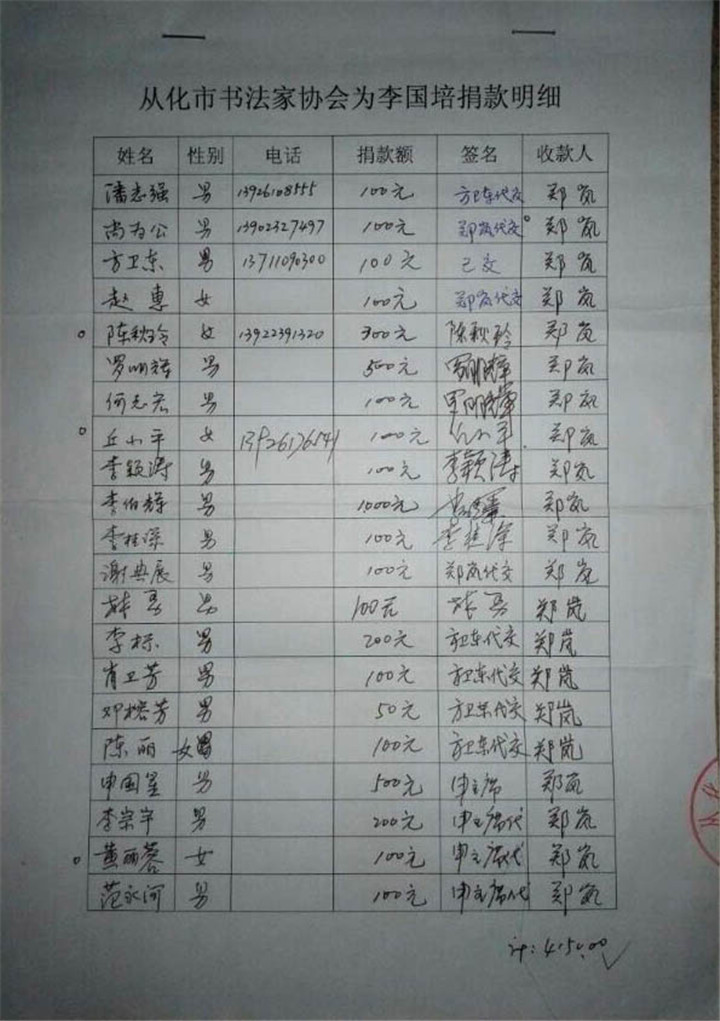 从化市书法家协会为李国培捐款明细
姓名 性别 电话 捐款额 签名 收款人
潘志强 男 13926108555 100元 方卫东代交 郑岚
尚为公 男 13902327497 100元 郑岚代交 郑岚
方卫东 男 13711090300 100元 已交 郑岚
赵惠 女 100元 郑岚代交 郑岚
陈秋玲 女 13922391320 300元 陈秋玲 郑岚
罗明辉 男 500元 罗明辉 郑岚
何志宏 男 100元 罗明辉 郑岚
丘小平 女 100元 丘小平 郑岚
李颖涛 男 100元 李颖涛 郑岚
李伯辉 男 1000元 郑岚
李桂深 男 100元 李桂深 郑岚
谢典辰 男 100元 郑岚代交 郑岚
林勇 男 100元 林勇 郑岚
李标 男 200元 方卫东代交 郑岚
肖卫芳 男 100元 方卫东代交 郑岚
邓榕芳 男 50元 方卫东代交 郑岚
陈丽 女 100元 方卫东代交 郑岚
申国星 男 500元 申主席 郑岚
李宗宇 男 200元 申主席代 郑岚
黄丽蓉 女 100元 申主席代 郑岚
范永河 男 100元 申主席代 郑岚
计:4150.00